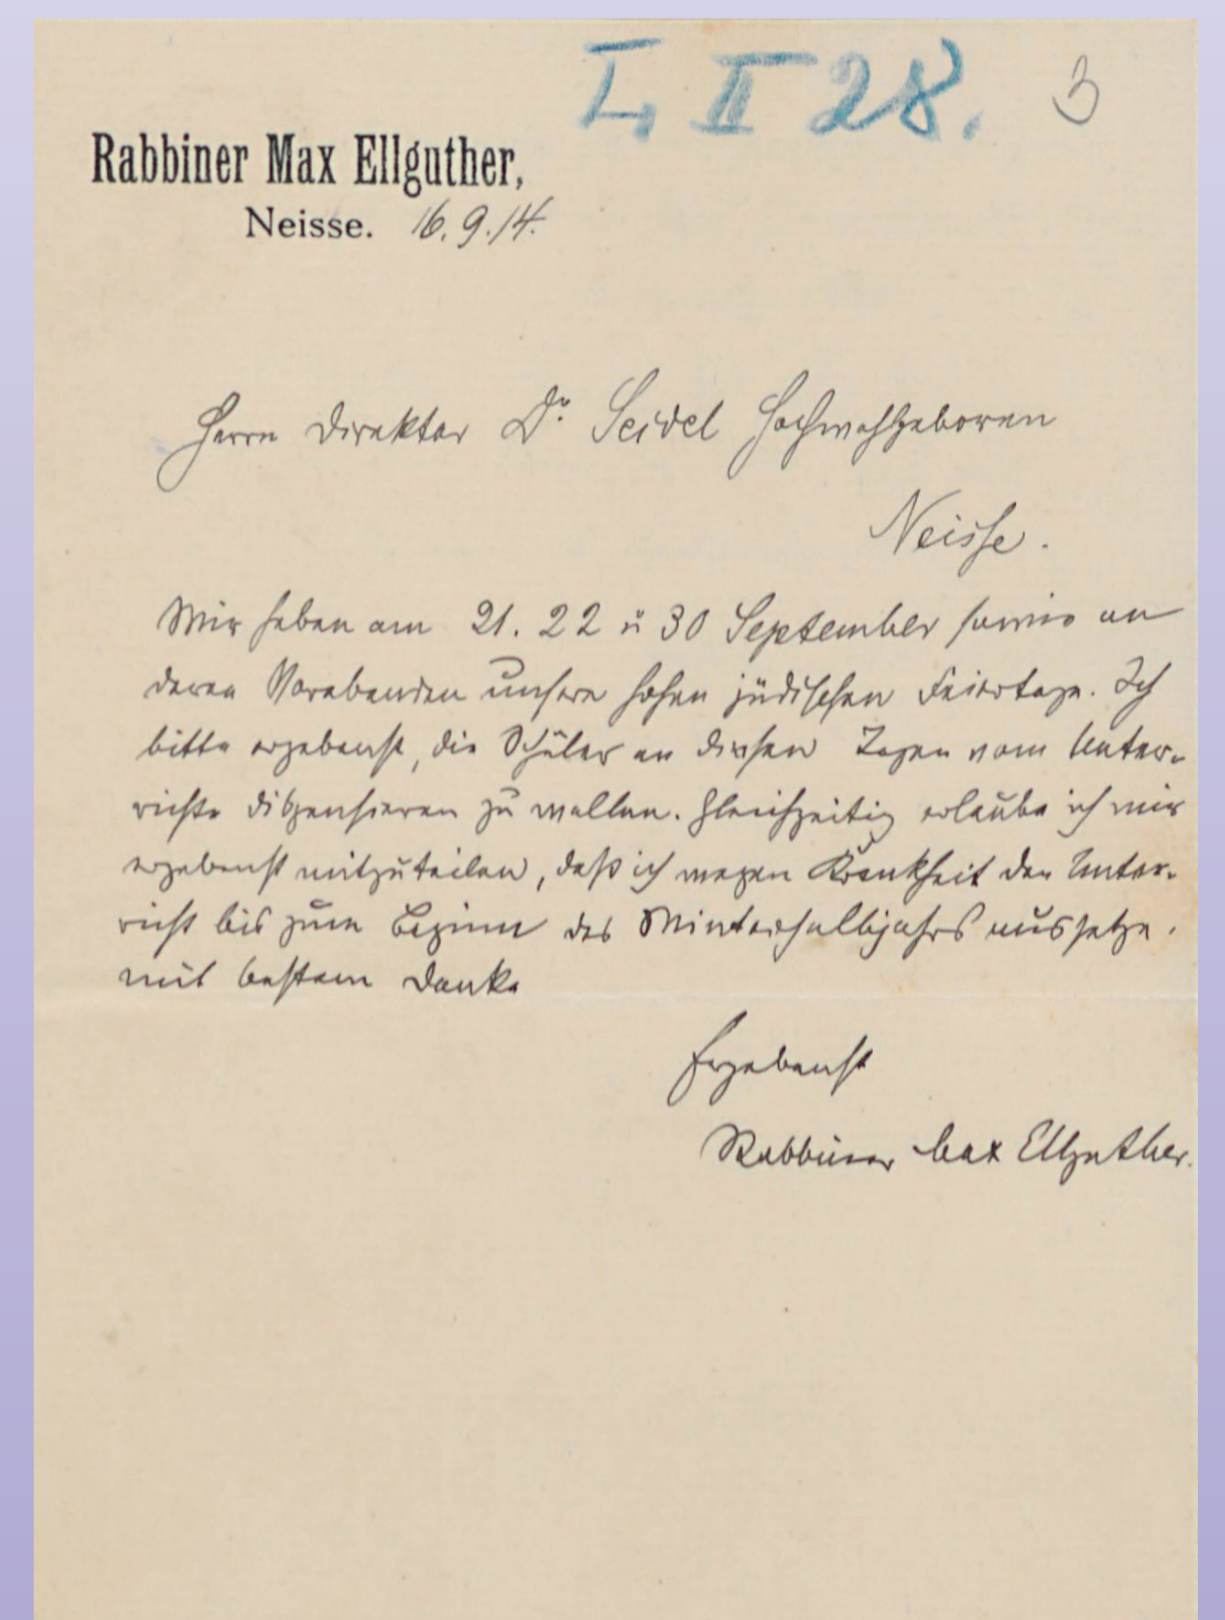 I, II 28. 3
Rabbiner Max Ellguther,
Neisse. 16.9.14.
Herrn Direktor Dr. Seidel Hochwohlgeboren
Neisse.
Wir haben am 21. 22 u 30 September sowie an
deren Vorabenden unsere hohen jüdischen Feiertage. Ich
bitte ergebenst, die Schüler an diesen Tagen vom Unter-
richte dispensieren zu wollen. Gleichzeitig erlaube ich mir
ergebenst mitzuteilen, daß ich wegen Krankheit den Unter-
richt bis zum Beginn des Winterhalbjahrs aussetze.
Mit bestem Danke
Ergebenst
Rabbiner Max Ellguther.